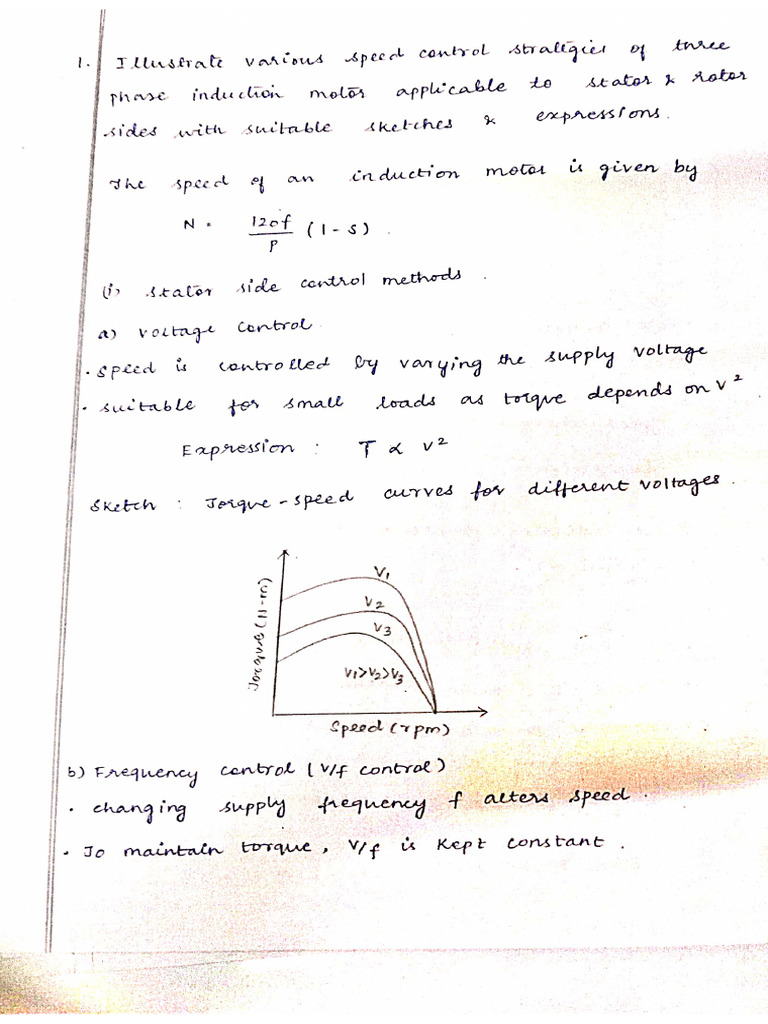 1. Illustrate various speed control strategies of three
phase induction motor applicable to stator & rotor
sides with suitable sketches & expressions.
The speed of an induction motor is given by
N = 120f/P (1-s).
(i) stator side control methods.
a) voltage control.
• speed is controlled by varying the supply voltage
• suitable for small loads as torque depends on V²
Expression : T ∝ V²
Sketch : Torque-speed curves for different voltages.
V1
V2
V3
V1>V2>V3
Torque (N-m)
Speed (rpm)
b) Frequency control (V/f control)
• changing supply frequency f alters speed.
• To maintain torque, V/f is kept constant.